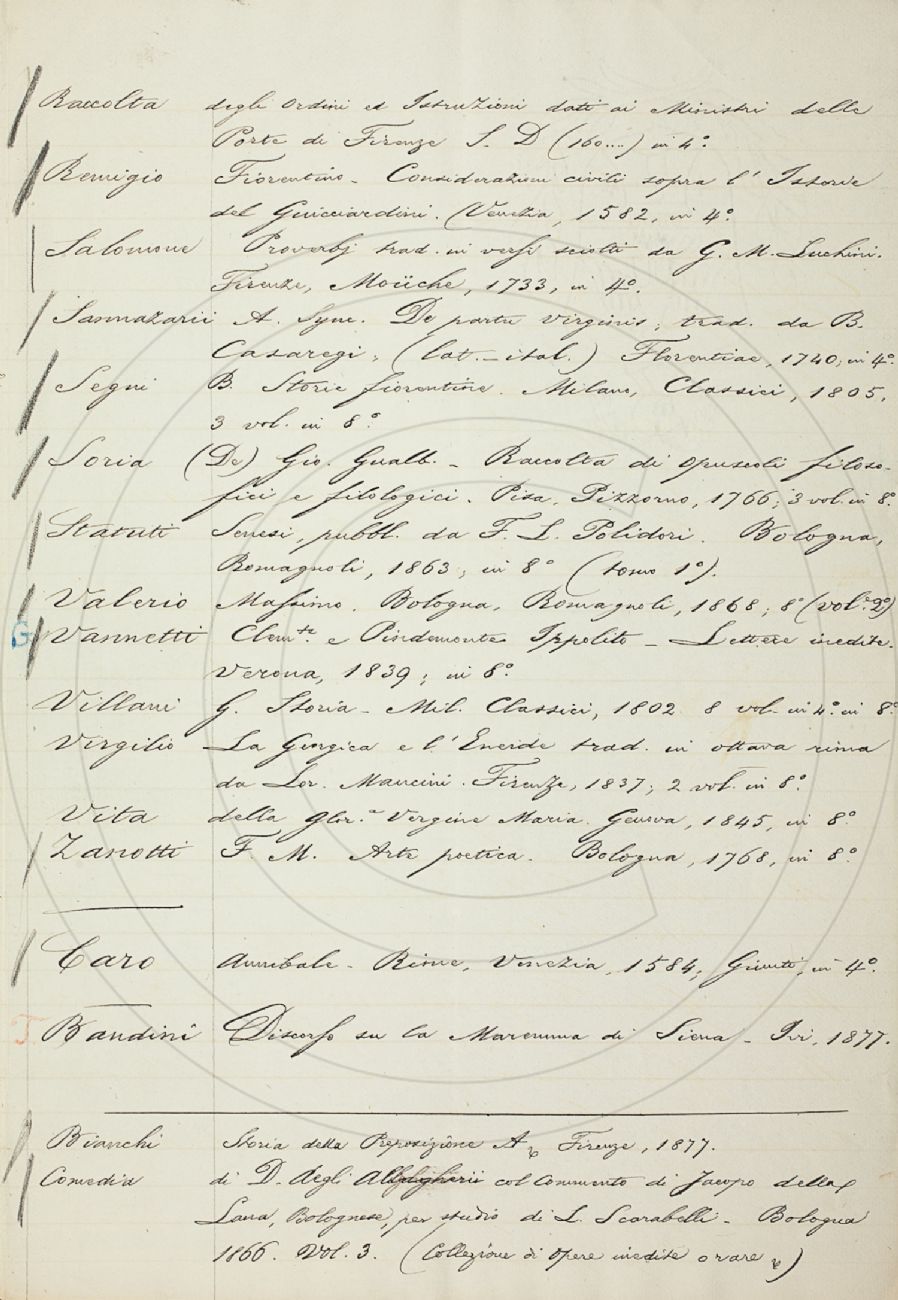 Raccolta degli Ordini ed Istruzioni dati ai Ministri delle
Porte di Firenze S. D (160....) in 4°.
Remigio Fiorentino - Considerazioni civili sopra l' Istorie
del Guicciardini. (Venezia, 1582, in 4°.
Salomone Proverbj trad. in versi sciolti da G. M. Luchini.
Firenze, Moüche, 1733, in 4°.
Sannazarii A. Sync. De partu virginis; trad. da B.
Casaregi; (lat.-ital.) Florentiae, 1740; in 4°.
Segni B. Storie fiorentine. Milano, Classici, 1805,
3 vol. in 8°
Soria (De) Gio. Gualb. - Raccolta di opuscoli filoso-
fici e filologici. Pisa, Pizzorno, 1766; 3 vol. in 8°.
Statuti Senesi, pubbl. da F. L. Polidori. Bologna,
Romagnoli, 1863; in 8° (tomo 1°).
Valerio Massimo. Bologna, Romagnoli, 1868; 8° (vol.e 2°)
G Vannetti Clem.te e Pindemonte Ippolito - Lettere inedite.
Verona, 1839; in 8°.
Villani G. Storia - Mil. Classici, 1802 8 vol. in 4°. in 8°
Virgilio La Georgica e l'Eneide trad. in ottava rima
da Lor. Mancini. Firenze, 1837; 2 vol. in 8°.
Vita della glor.a Vergine Maria. Genova, 1845, in 8°
Zanotti F. M. Arte poetica. Bologna, 1768, in 8°.
Caro Annibale - Rime, Venezia, 1584, Giunti, in 4°.
T Bandini Discorso su la Maremma di Siena - Ivi, 1877.
Bianchi Storia della Preposizione A, Firenze, 1877.
Comedia di D. degli Allaghierii col Commento di Jacopo della
Lana, Bolognese, per studio di L. Scarabelli - Bologna
1866. Vol. 3. (Collezione di Opere inedite o rare)